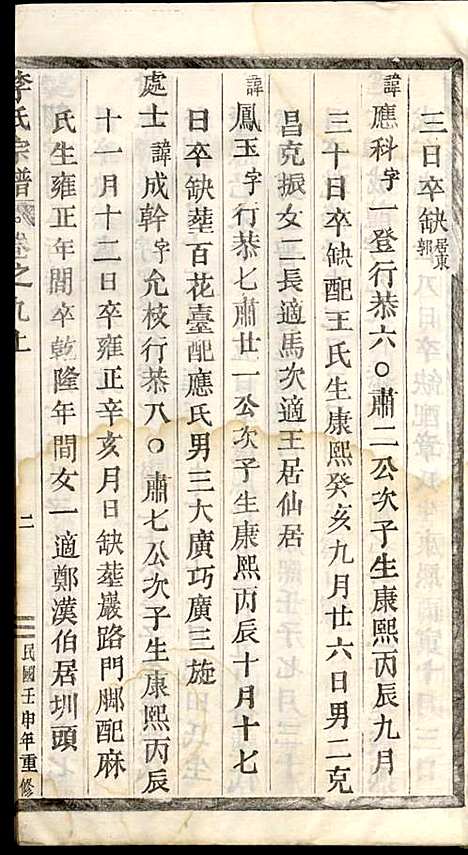 三日卒缺居東郭
諱應科字一登行恭六〇肅二公次子生康熙丙辰九月
三十日卒缺配王氏生康熙癸亥九月廿六日男二克
昌克振女二長適馬次適王居仙居
諱鳳玉字行恭七肅廿一公次子生康熙丙辰十月十七
日卒缺塟百花臺配應氏男三大廣巧廣三旋
處士諱成幹字允枝行恭八〇肅七公次子生康熙丙辰
十一月十二日卒雍正辛亥月日缺塟巖路門脚配麻
氏生雍正年間卒乾隆年間女一適鄭漢伯居圳頭
李氏宗譜 卷之九上 二 民國壬申年重修